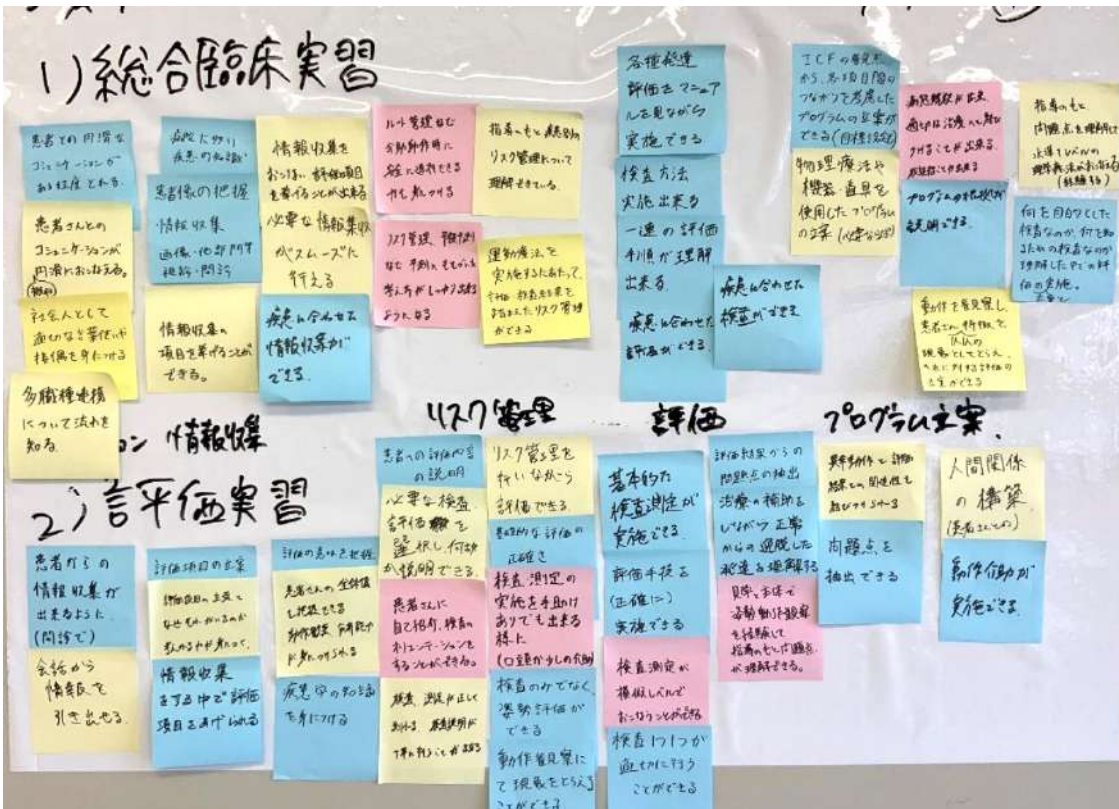 1) 総合臨床実習
患者との円滑な
コミュニケーションが
ある程度とれる.
患者さんとの
コミュニケーションが
円滑におこなえる。
社会人として
適切な言葉使いや
接遇を身につける
多職種連携
について流れを
知る
疾患の知識
患者像の把握
情報収集
画像・他部門
視診・問診
情報収集の
項目を挙げることが
できる。
情報収集を
おこない、評価項目
を挙げることが出来る。
必要な情報収集
がスムーズに
行える
疾患に合わせた
情報収集が
できる.
ルート管理など
介助動作時に
安全に遂行できる
力を身につける
リスク管理、予後予測
など 予測の
考え方がしっかり出来る
ようになる
指導のもと疾患別の
リスク管理について
理解できている.
運動療法を
実施するにあたって、
評価・検査結果を
踏まえたリスク管理
ができる
各種発達
評価をマニュア
ルを見ながら
実施できる
検査方法
実施出来る
一連の評価
手順が理解
出来る.
疾患に合わせた
評価ができる.
疾患に合わせた
検査ができる
ICFの観点
から、各項目間の
つながりを考慮した
プログラムの立案が
できる(目標設定)
物理療法や
機器・道具を
使用したプログラム
の立案
プログラムの
説明できる.
指導のもと
問題点を理解して
何を目的とした
検査なのか、何を知
るための検査なのか
理解した中での評
価の実施。
動作を観察し、
患者さんの特徴を
現象としてとらえ、
それに対する評価の
立案ができる
ョン 情報収集
リスク管理
評価
プログラム立案.
2) 評価実習
患者からの
情報収集が
出来るように.
(問診で)
会話から
情報を
引き出せる.
評価項目の立案
評価項目の立案と
なぜそれがいるのか
考える力が身につく.
情報収集
をする中で評価
項目をあげられる
評価の意味を把握
患者さんの全体像
を把握できる
動作観察 分析能力
が身につけられる
疾患学の知識
を身につける
患者への評価内容
の説明
必要な検査、
評価を
選択し、何故
か説明できる.
患者さんに
自己紹介、検査の
オリエンテーションを
することができる。
検査、測定が正しく
リスク管理を
行いながら
評価できる.
基礎的な評価の
正確さ
検査、測定の
実施を手助け
ありでも出来る
様に
(口頭か少しの介助)
検査のみでなく、
姿勢評価が
できる
動作観察に
て現象をとらえる
ことができる
基本的な
検査測定が
実施できる.
評価手技を
(正確に)
実施できる
検査測定が
模倣レベルで
おこなうことができる
検査1つ1つが
適切に行う
ことができる
評価結果からの
問題点の抽出
治療の補助を
しながら正常
からの逸脱した
発達を理解する
見学と本作で
姿勢動作観察
を経験して
指導のもと問題点
が理解できる。
異常動作と評価
結果との関連性を
結びつけられる
問題点を
抽出できる
人間関係
の構築.
(患者さんとの)
動作介助が
実施できる.